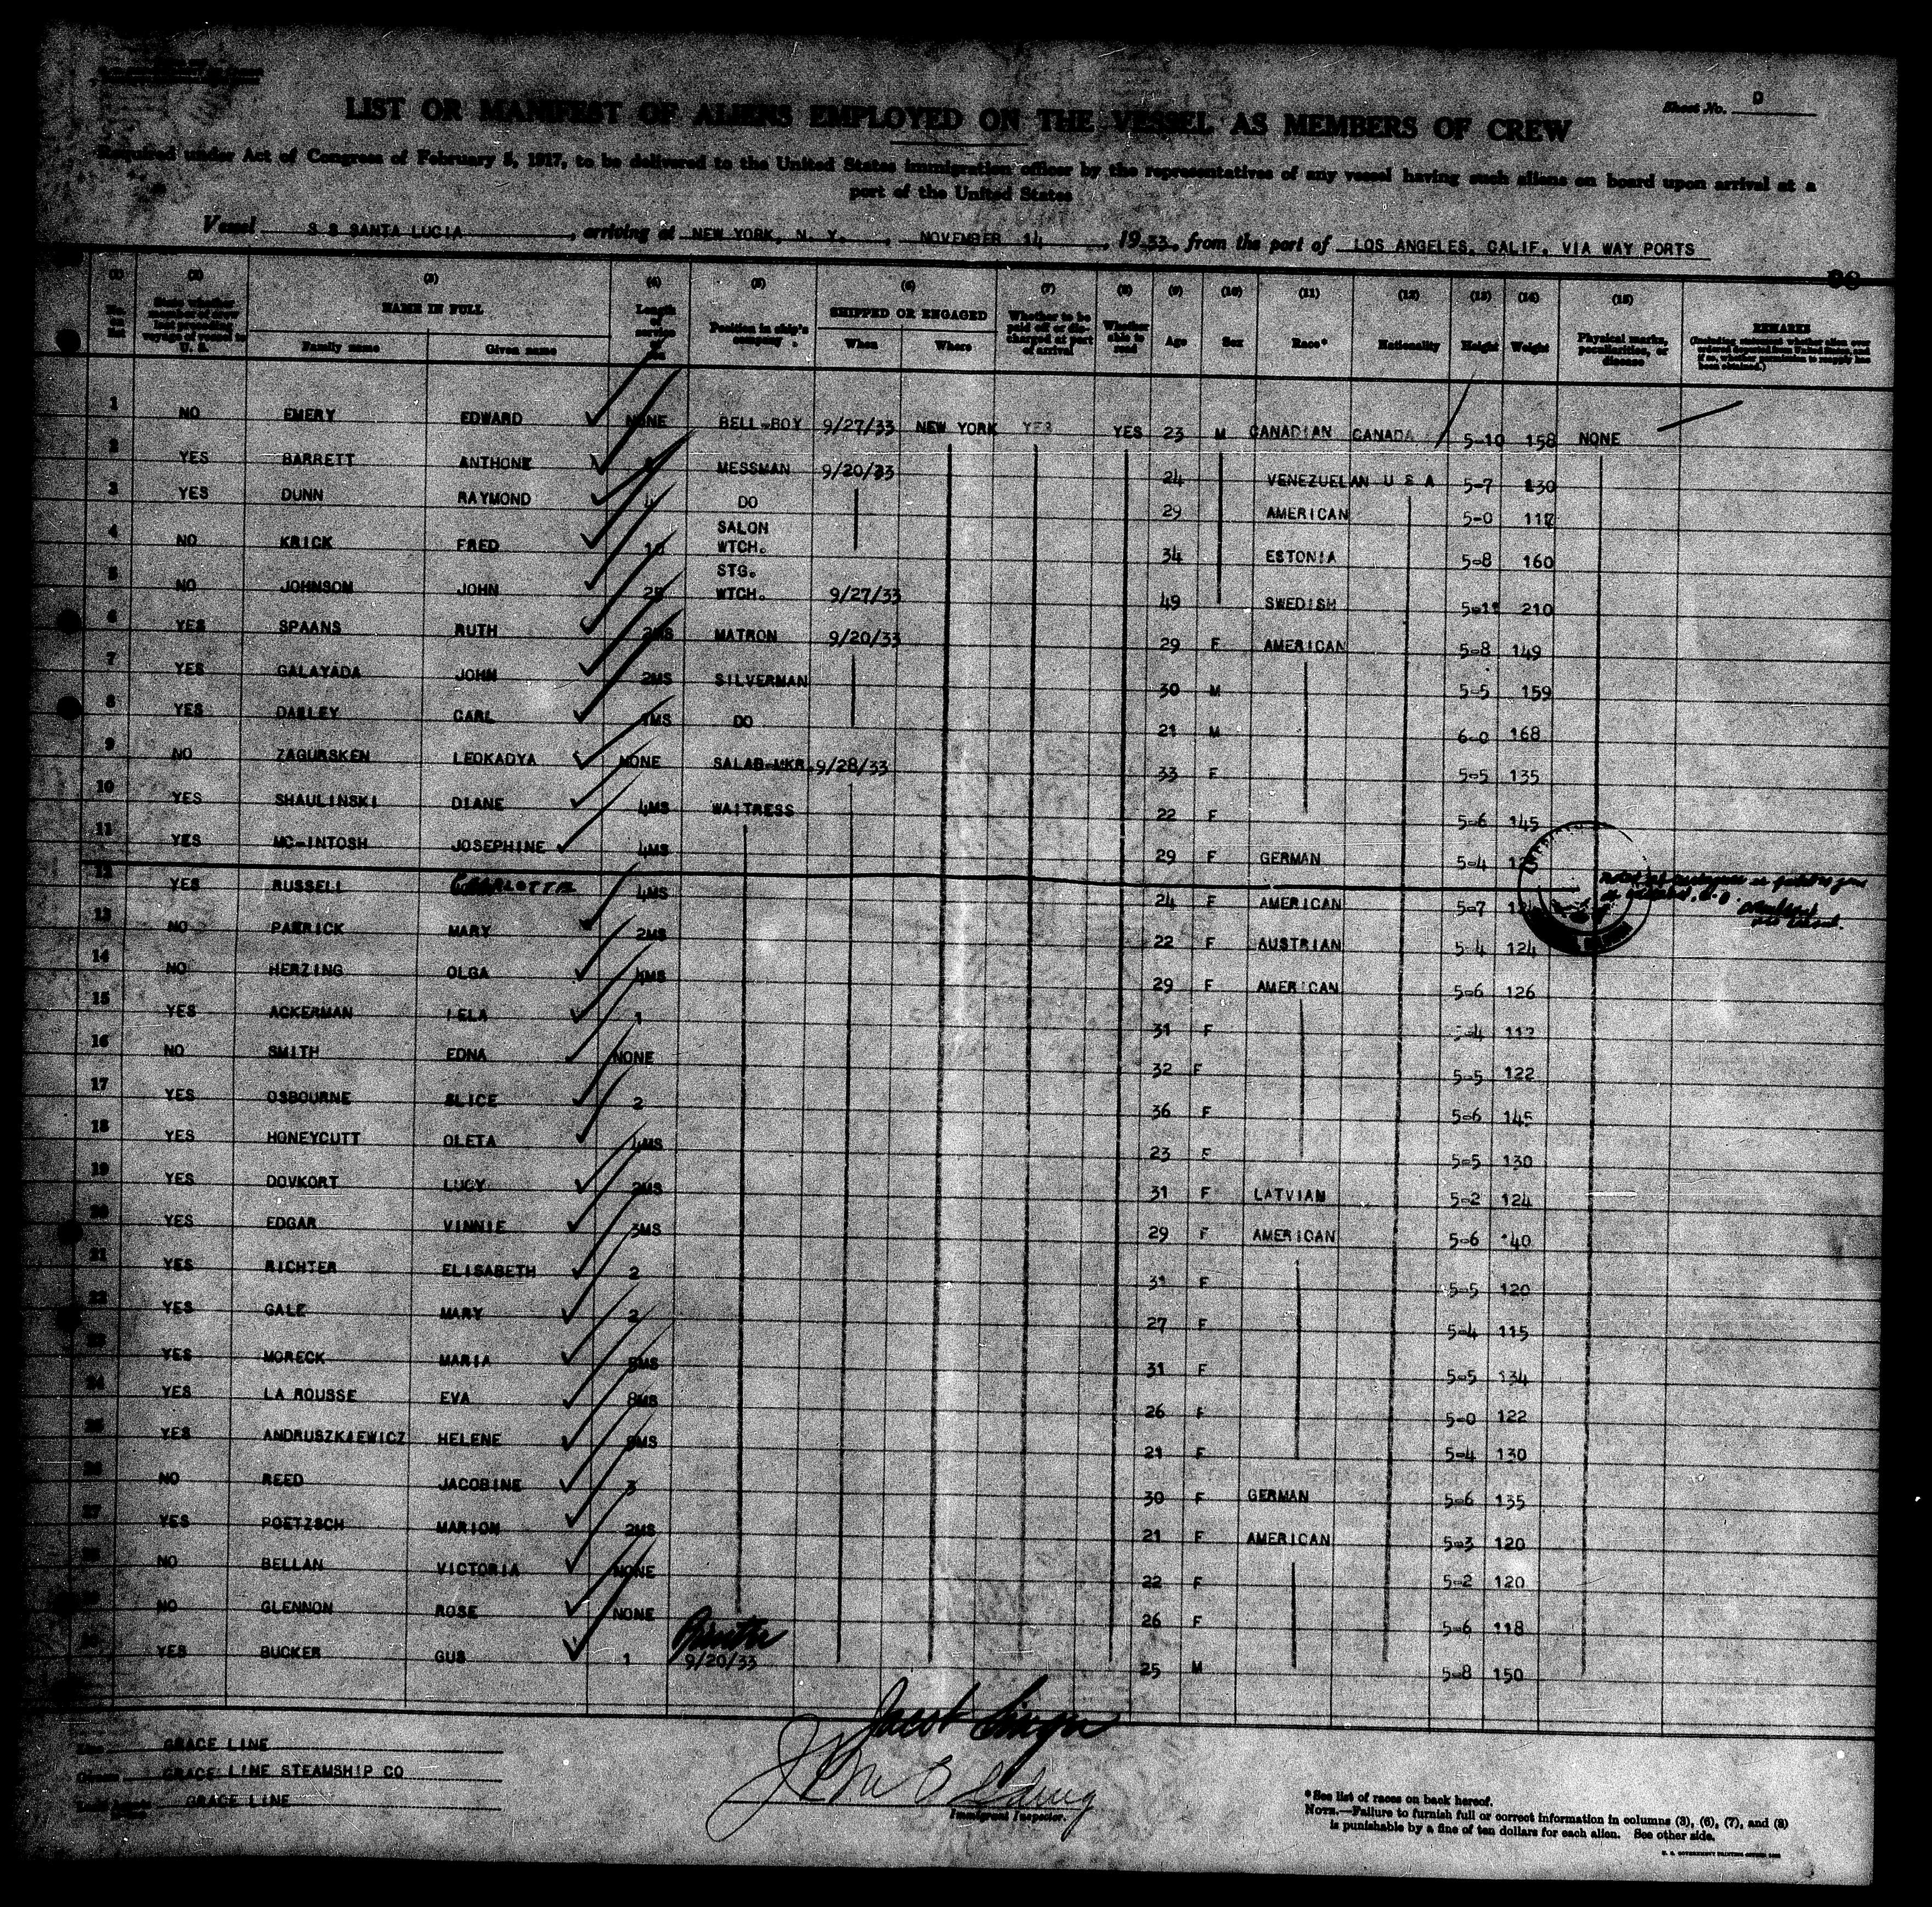 Sheet No. D
LIST OR MANIFEST OF ALIENS EMPLOYED ON THE VESSEL AS MEMBERS OF CREW
Required under Act of Congress of February 5, 1917, to be delivered to the United States immigration officer by the representatives of any vessel having such aliens on board upon arrival at a
port of the United States
Vessel S S SANTA LUCIA, arriving at NEW YORK, N. Y., NOVEMBER 14, 1933, from the port of LOS ANGELES, CALIF. VIA WAY PORTS
(1) (2) (3) (4) (5) (6) (7) (8) (9) (10) (11) (12) (13) (14) (15)
No. on list State whether member of crew last preceding voyage of vessel to U. S. NAME IN FULL Family name Given name Length of service at sea Position in ship's company SHIPPED OR ENGAGED When Where Whether to be paid off or discharged at port of arrival Whether able to read Age Sex Race* Nationality Height Weight Physical marks, peculiarities, or disease REMARKS
1 NO EMERY EDWARD NONE BELL-BOY 9/27/33 NEW YORK YES YES 23 M CANADIAN CANADA 5-10 158 NONE
2 YES BARRETT ANTHONE MESSMAN 9/20/33 24 VENEZUELAN U S A 5-7 130
3 YES DUNN RAYMOND 4 DO 29 AMERICAN 5-0 117
4 NO KRICK FRED 10 SALON WTCH. 34 ESTONIA 5-8 160
5 NO JOHNSOM JOHN 25 STG. WTCH. 9/27/33 49 SWEDISH 5-11 210
6 YES SPAANS RUTH 2MS MATRON 9/20/33 29 F AMERICAN 5-8 149
7 YES GALAYADA JOHN 2MS SILVERMAN 30 M 5-5 159
8 YES DAELEY CARL 4MS DO 21 M 6-0 168
9 NO ZAGURSKEN LEOKADYA NONE SALAB-MKR. 9/28/33 33 F 5-5 135
10 YES SHAULINSKI DIANE 4MS WAITRESS 22 F 5-6 145
11 YES MC-INTOSH JOSEPHINE 4MS 29 F GERMAN 5-4
12 YES RUSSELL CHARLOTTE 4MS 24 F AMERICAN 5-7
13 NO PATRICK MARY 2MS 22 F AUSTRIAN 5-4 124
14 NO HERZING OLGA 4MS 29 F AMERICAN 5-6 126
15 YES ACKERMAN LELA 1 31 F 5-4 112
16 NO SMITH EDNA NONE 32 F 5-5 122
17 YES OSBOURNE SLICE 2 36 F 5-6 145
18 YES HONEYCUTT OLETA 4MS 23 F 5-5 130
19 YES DOVKORT LUCY 2MS 31 F LATVIAN 5-2 124
20 YES EDGAR VINNIE 3MS 29 F AMERICAN 5-6 140
21 YES RICHTER ELISABETH 2 31 F 5-5 120
22 YES GALE MARY 2 27 F 5-4 115
23 YES MORECK MARIA 5MS 31 F 5-5 134
24 YES LA ROUSSE EVA 8MS 26 F 5-0 122
25 YES ANDRUSZKIEWICZ HELENE 8MS 21 F 5-4 130
26 NO REED JACOBINE 3 30 F GERMAN 5-6 135
27 YES POETZSCH MARION 2MS 21 F AMERICAN 5-3 120
28 NO BELLAN VICTORIA NONE 22 F 5-2 120
29 NO GLENNON ROSE NONE 26 F 5-6 118
30 YES BUCKER GUS 1 9/20/33 25 M 5-8 150
Line GRACE LINE
Owners GRACE LINE STEAMSHIP CO
Local Agents GRACE LINE
Immigrant Inspector.
*See list of races on back hereof.
NOTE.—Failure to furnish full or correct information in columns (3), (6), (7), and (8)
is punishable by a fine of ten dollars for each alien. See other side.